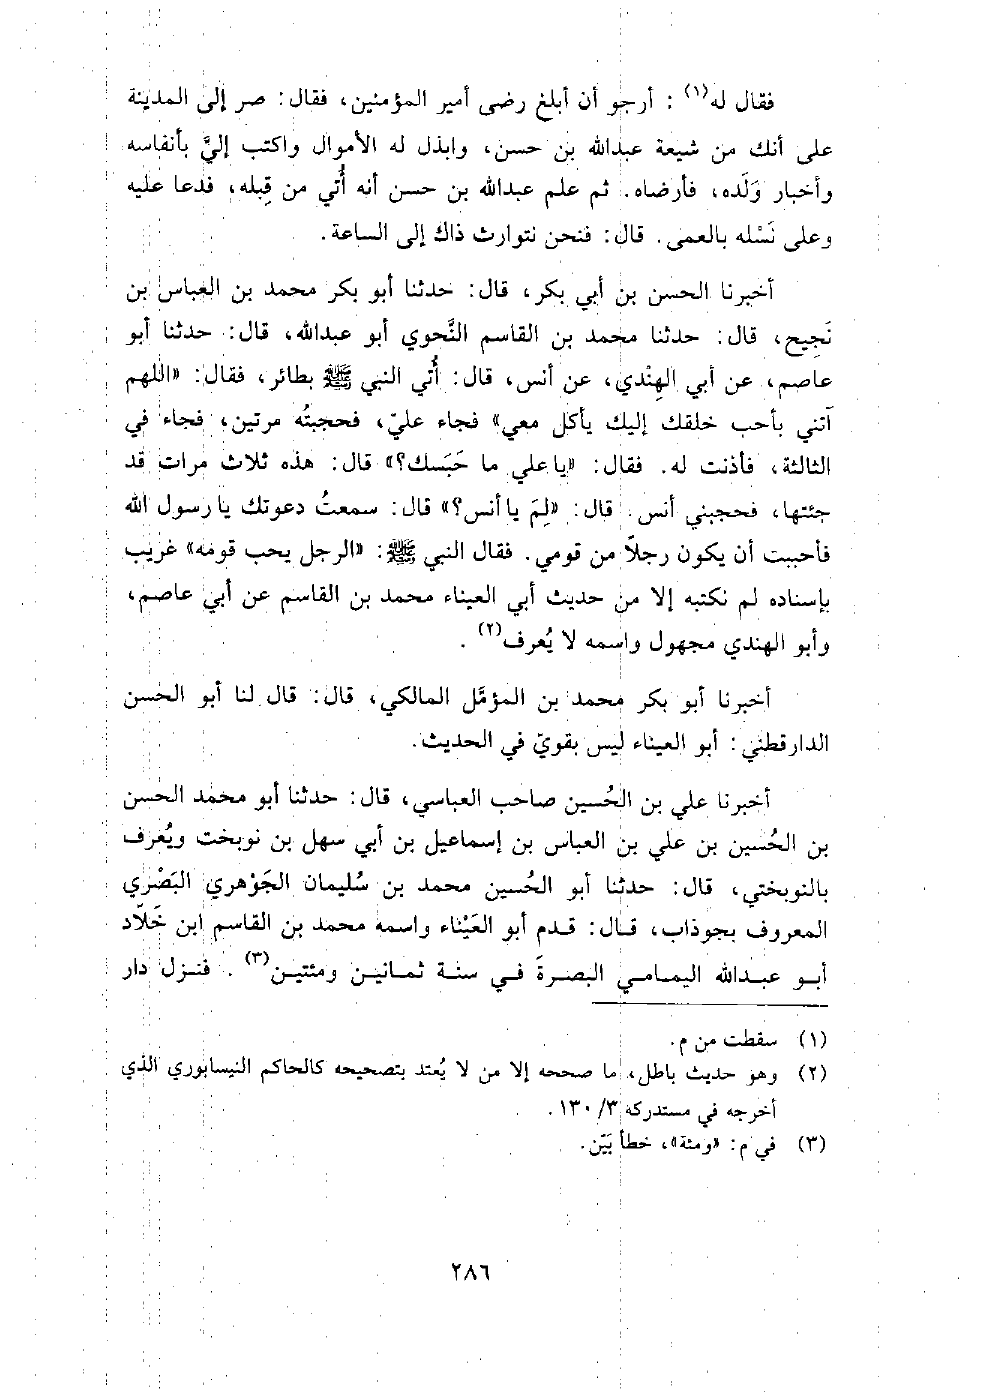 فقال له(١) : أرجو أن أبلغ رضى أمير المؤمنين، فقال: صر إلى المدينة
على أنك من شيعة عبدالله بن حسن، وابذل له الأموال واكتب إليَّ بأنفاسه
وأخبار وَلَده، فأرضاه. ثم علم عبدالله بن حسن أنه أُتي من قِبله، فدعا عليه
وعلى نَسْله بالعمى. قال: فنحن نتوارث ذاك إلى الساعة.
أخبرنا الحسن بن أبي بكر، قال: حدثنا أبو بكر محمد بن العباس بن
نَجِيح، قال: حدثنا محمد بن القاسم النَّحوي أبو عبدالله، قال: حدثنا أبو
عاصم، عن أبي الهِنْدي، عن أنس، قال: أُتي النبي ﷺ بطائر، فقال: «اللهم
آتني بأحب خلقك إليك يأكل معي» فجاء عليّ، فحجبتُه مرتين، فجاء في
الثالثة، فأذنت له. فقال: «يا علي ما حَبَسك؟» قال: هذه ثلاث مرات قد
جئتها، فحجبني أنس. قال: «لِمَ يا أنس؟» قال: سمعتُ دعوتك يا رسول الله
فأحببت أن يكون رجلاً من قومي. فقال النبي ﷺ: «الرجل يحب قومه» غريب
بإسناده لم نكتبه إلا من حديث أبي العيناء محمد بن القاسم عن أبي عاصم،
وأبو الهندي مجهول واسمه لا يُعرف(٢) .
أخبرنا أبو بكر محمد بن المؤمَّل المالكي، قال: قال لنا أبو الحسن
الدارقطني: أبو العيناء ليس بقويّ في الحديث.
أخبرنا علي بن الحُسين صاحب العباسي، قال: حدثنا أبو محمد الحسن
بن الحُسين بن علي بن العباس بن إسماعيل بن أبي سهل بن نوبخت ويُعرف
بالنوبختي، قال: حدثنا أبو الحُسين محمد بن سُليمان الجَوْهري البَصْري
المعروف بجوذاب، قال: قدم أبو العَيْناء واسمه محمد بن القاسم ابن خَلَّاد
أبو عبدالله اليمامي البصرةَ في سنة ثمانين ومئتين(٣) . فنزل دار
(١) سقطت من م.
(٢) وهو حديث باطل، ما صححه إلا من لا يُعتد بتصحيحه كالحاكم النيسابوري الذي
أخرجه في مستدركه ٣/ ١٣٠ .
(٣) في م: «ومئة»، خطأ بَيّن.
٢٨٦